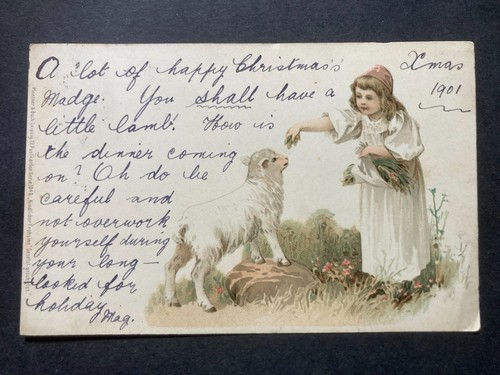 A lot of happy Christmas's
Xmas
1901
Madge. You shall have a
little lamb. How is
the dinner coming
on? Oh do be
careful and
not overwork
yourself during
your long-
looked for
holiday
Mag.